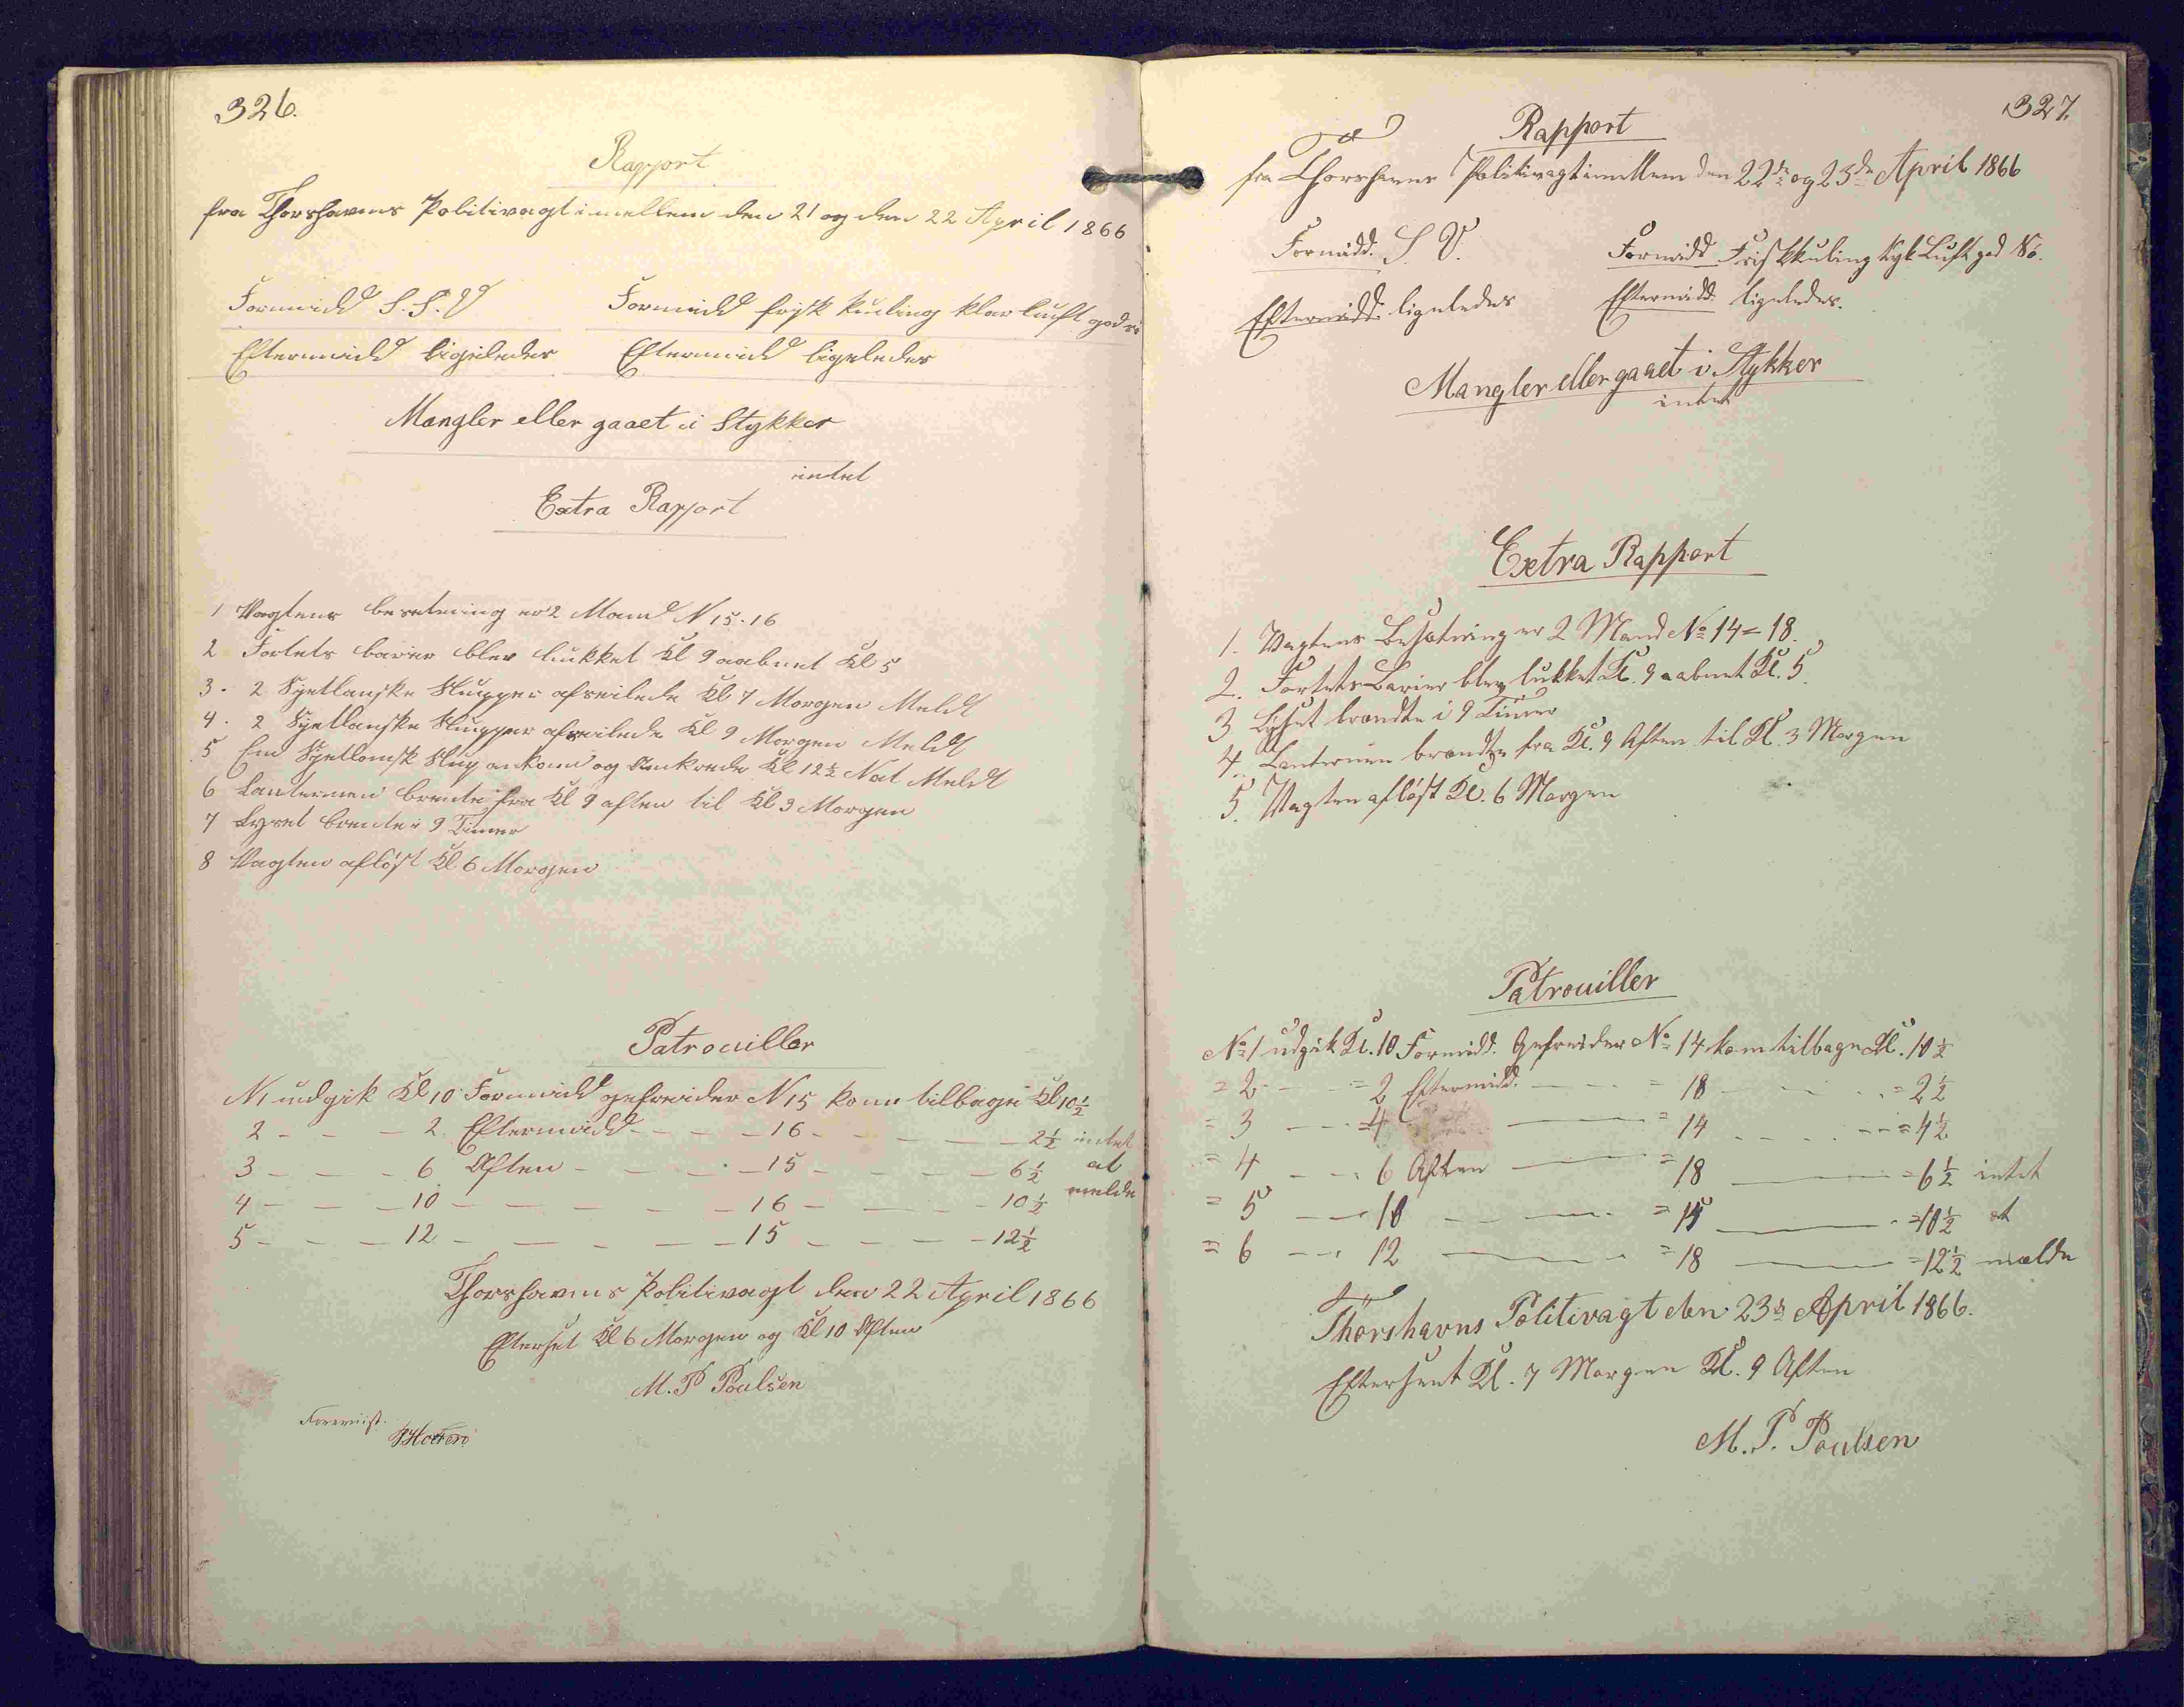 326.
Rapport
fra Thorshavns Politivagt imellem den 21 og den 22 April 1866
Formidd S.S.V Formidd frisk kuling klar luft god
Eftermidd ligeledes Eftermidd ligeledes
Mangler eller gaaet i Stykker
intet
Extra Rapport
1 Vagtens besetning er 2 Mand N 15. 16
2 Fortets barier blev lukket Kl 9 aabnet Kl 5
3. 2 Syetlanske Slupper afseilede Kl 7 Morgen Meldt
4. 2 Syetlanske Slupper afseilede Kl 9 Morgen Meldt
5 Em Syetlansk Slup ankom og Ankrede Kl 12½ Nat Meldt
6 Lanternen brente fra Kl 9 aften til Kl 3 Morgen
7 Lyset brente i 9 Timer
8 Vagten afløst Kl 6 Morgen
Patrouiller
N 1 udgik Kl 10 Formidd gefreider N 15 kom tilbage Kl 10½
2 - - - 2 Eftermidd - - - 16 - - - - - 2½ intet
3 - - - 6 Aften - - - 15 - - - - 6½ at
4 - - - 10 - - - - - 16 - - - - 10½ melde
5 - - - 12 - - - - - 15 - - - - 12½
Thorshavns Politivagt den 22 April 1866
Efterset Kl 6 Morgen og Kl 10 Aften
M. P Poulsen
Foreviist.
327.
Rapport
fra Thorshavns Politivagt imellem den 22de og 23de April 1866
Formidd. S. V. Formidd Frisk Kuling tyk Luft god Sø.
Eftermidd. ligeledes Eftermidd. ligeledes.
Mangler eller gaaet i Stykker
intet
Extra Rapport
1. Vagtens Besætning er 2 Mand No 14 = 18.
2. Fortets Barier blev lukket Kl. 9 aabnet Kl. 5.
3 Lyset brændte i 9 Timer
4. Lanternen brændte fra Kl. 9 Aften til Kl. 3 Morgen
5. Vagten afløst Kl. 6 Morgen
Patrouiller
No 1 udgik Kl. 10 Formidd. Gefreider No 14 kom tilbage Kl. 10½
= 2 - - = 2 Eftermidd. - - - = 18 - - - = 2½
= 3 - - = 4 - - - = 14 - - - = 4½
= 4 - - 6 Aften - - = 18 - - = 6½ intet
= 5 - - 10 - - - = 14 - - = 10½ at
= 6 - - 12 - - - = 18 - - = 12½ melde
Thorshavns Politivagt den 23de April 1866.
Efterseet Kl. 7 Morgen Kl. 9 Aften
M. P. Poulsen